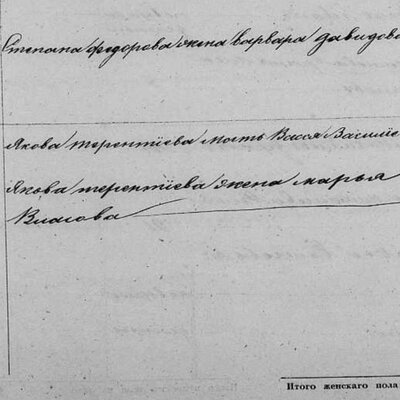 Степана федорова жена варвара давидова
Якова терентїева мать Васса Василие
Якова терентїева жена марья
Власова
Итого женскаго пола